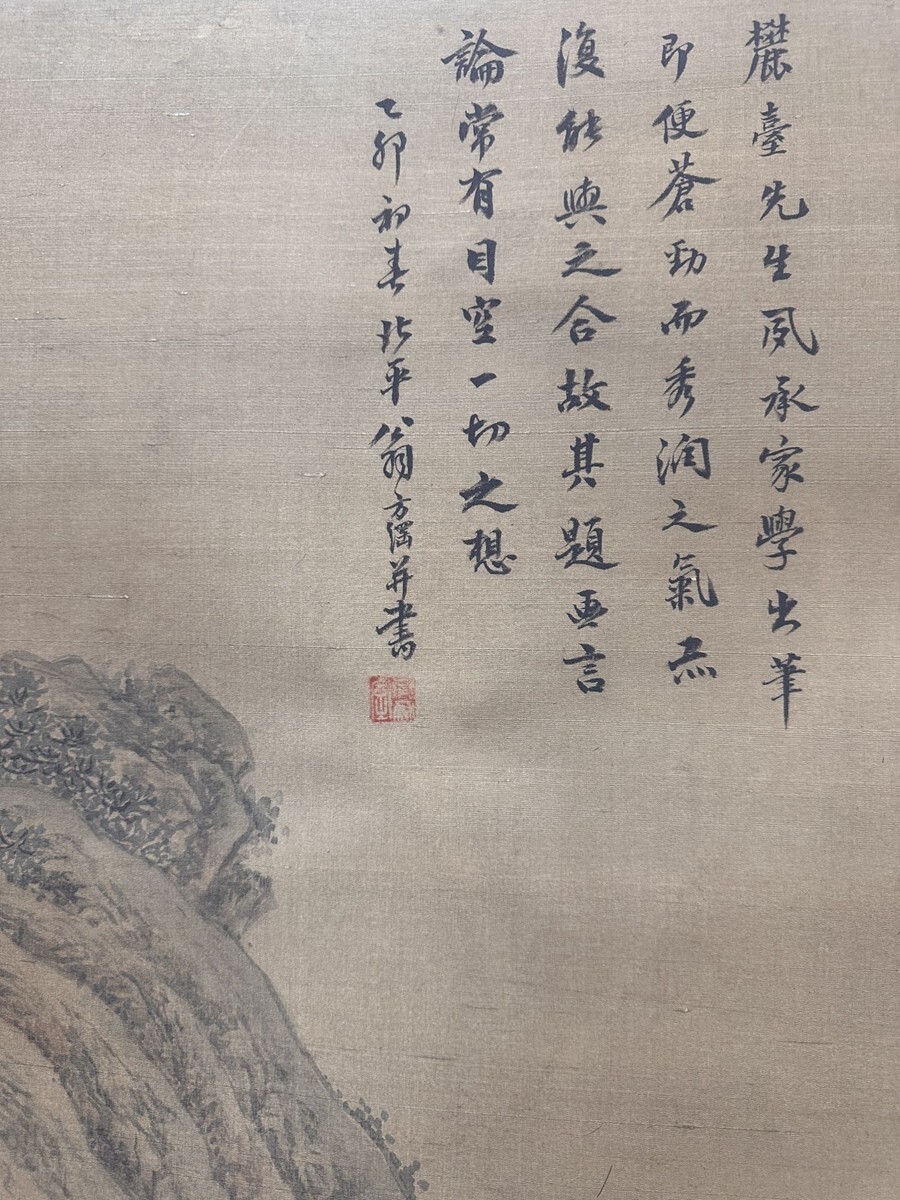 麓臺先生夙承家學出筆
即便蒼勁而秀潤之氣亦
復能與之合故其題画言
論常有目空一切之想
乙卯初春北平翁方綱并書